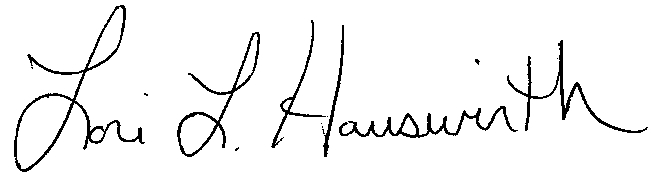 Lori L. Hauswirth